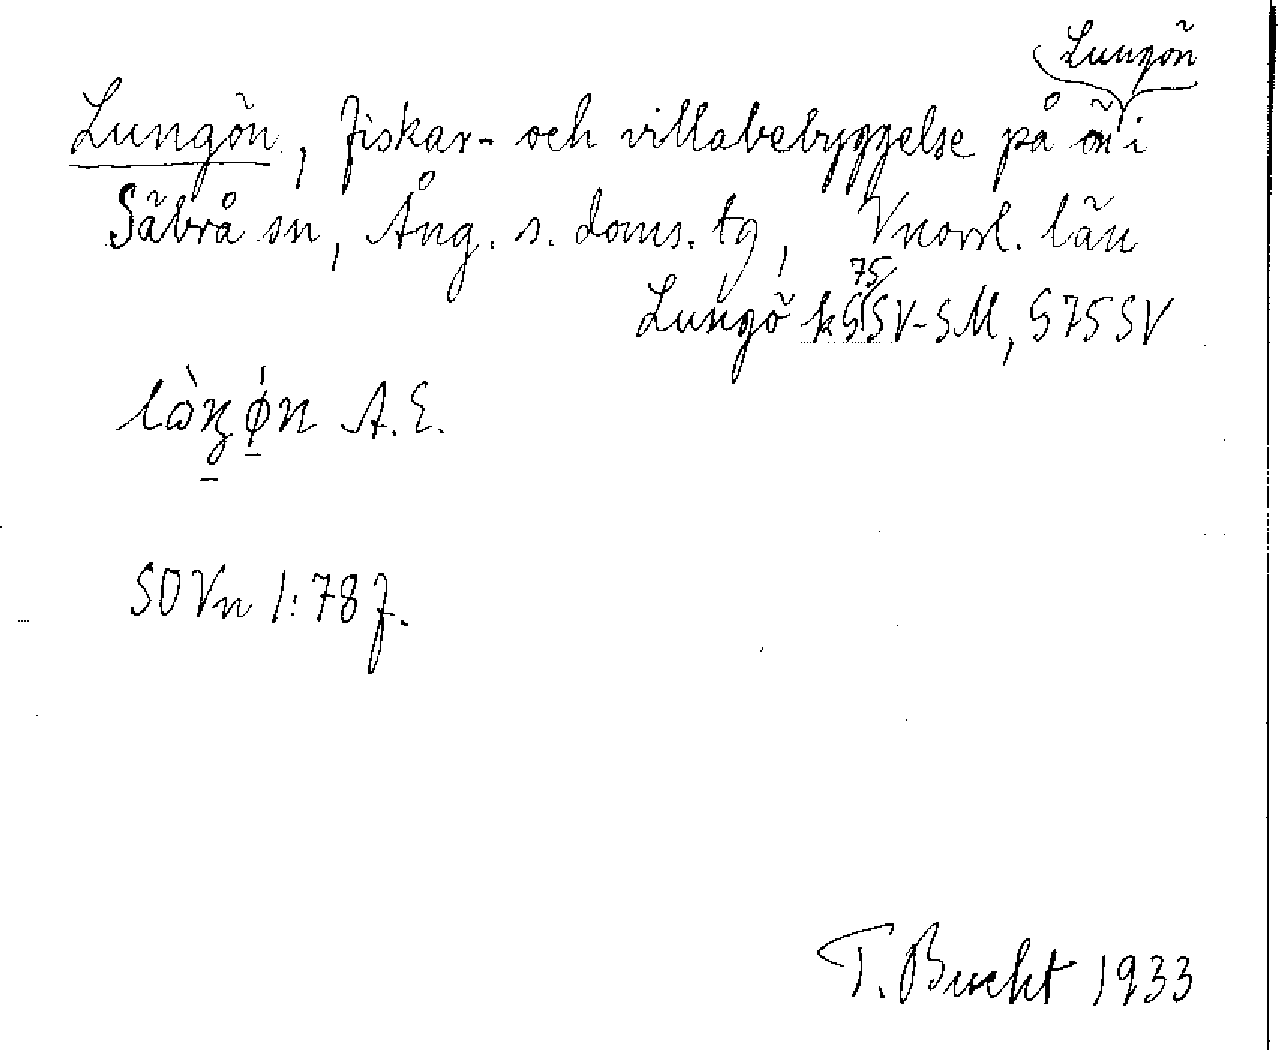 Lungön
Lungön, fiskar- och villabebyggelse på ön i
Säbrå sn, Ång. s. doms. tg, Vnorrl. län
75
Lungö kSSV-SM, S75SV
A.E.
SOVn 1:78 f.
T. Bucht 1933